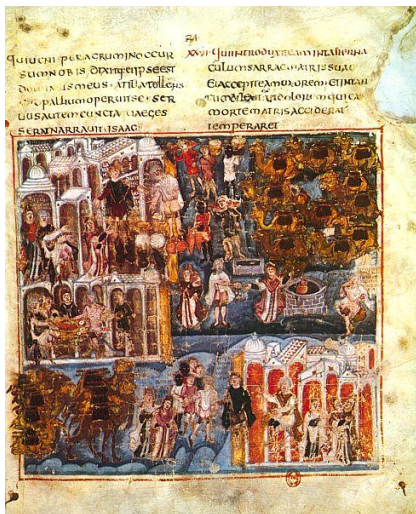 QUIUENIT PERAGRUMINOCCUR
SUMNOBIS DIXITQ IPSEEST
ISMEUS. ATILLATOLLENS
PALLIUMOPERUITSE. SER
UUSAUTEMCUNCTA GES
SERATNARRAUIT. ISAAC
XXVI QUIINTRODUXITEAMINTABERNA
CULUMSARRAE MATRISSUAE
ETACCEPITEAMUXOREM. ETINTAN
TUM DOLOREM
MORTEMATRISACCIDERAT
TEMPERARET